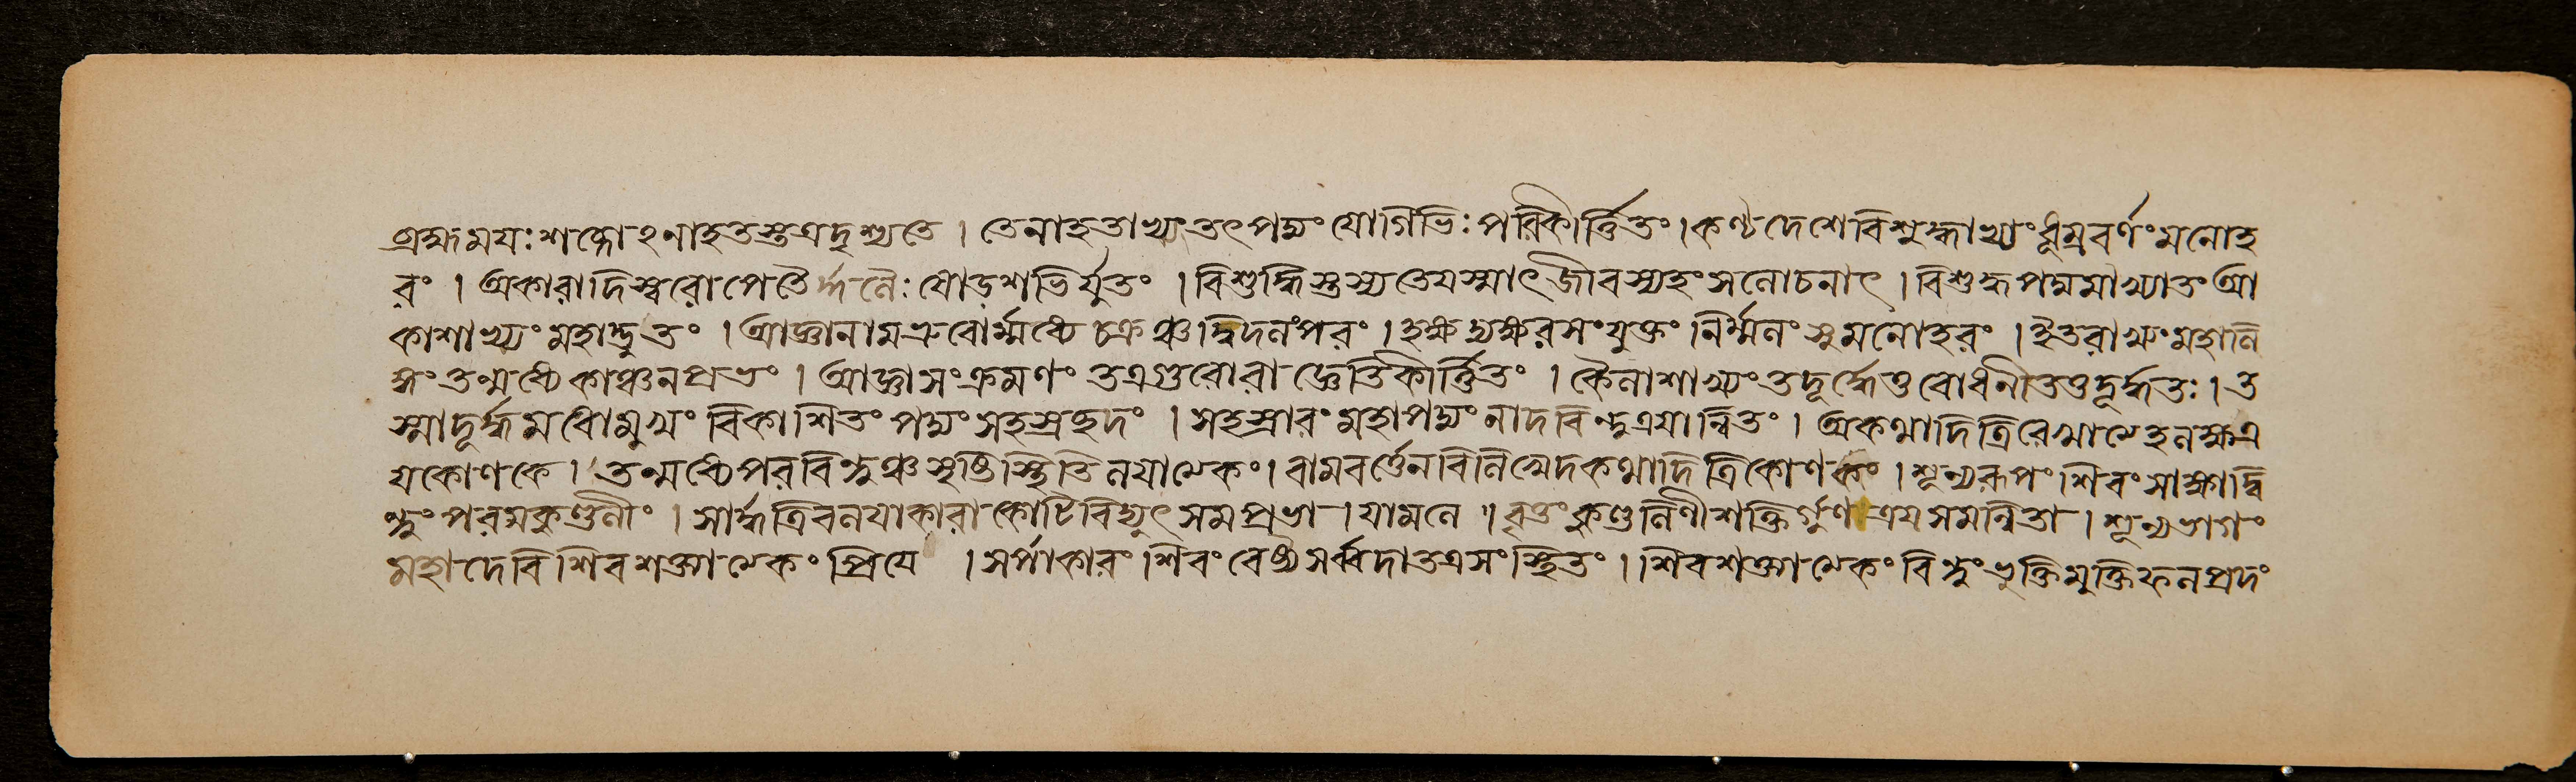 ব্রহ্মময়ঃ শব্দোঽনাহতস্তত্র দৃশ্যতে । তেনাহতাখ্যং তৎ পদ্মং যোগিভিঃ পরিকীর্ত্তিতং । কণ্ঠদেশে বিশুদ্ধাখ্যং ধূম্রবর্ণং মনোহ
রং । অকারাদিস্বরোপেতৈর্দ্দলৈঃ ষোড়শভির্যুতং । বিশুদ্ধিস্তস্যতে যস্মাৎ জীবস্য হংসলোচনাৎ । বিশুদ্ধপদ্মমাখ্যাতং আ
কাশাখ্যং মহাদ্ভুতং । আজ্ঞানাম ভ্রুবোর্ম্মধ্যে চক্রঞ্চ দ্বিদলং পরং । হক্ষদ্ব্যক্ষরসংযুক্তং নির্ম্মলং সুমনোহরং । ইতরাখ্যং মহালি
ঙ্গং তন্মধ্যে কাঞ্চনপ্রভং । আজ্ঞাসংক্রমণং তত্র গুরোরাজ্ঞেতি কীর্ত্তিতং । কৈলাশাখ্যং তদূর্দ্ধে তু বোধনী তত্তদূর্দ্ধতঃ । ত
স্মাদূর্দ্ধমধোমুখং বিকাশিতং পদ্মং সহস্রছদং । সহস্রারং মহাপদ্মং নাদবিন্দুত্রয়ান্বিতং । অকথাদিত্রিরেখাত্মে হলক্ষত্র
য়কোণকে । তন্মধ্যে পরবিন্দুঞ্চ সৃষ্টিস্থিতিলয়াত্মকং । বামবর্ত্তেন বিলিখেদকথাদিত্রিকোণকং । শূন্যরূপং শিবং সাক্ষাদ্বি
ন্দুং পরমকুণ্ডলীং । সার্দ্ধত্রিবলয়াকারা কোটিবিদ্যুৎসমপ্রভা । যামলে ॥ বৃত্তং কুণ্ডলিনী শক্তির্গুণত্রয়সমন্বিতা । শূন্যভাগং
মহাদেবি শিবশক্ত্যাত্মকং প্রিয়ে । সর্পাকারং শিবং বেষ্ট্য সর্ব্বদা তত্র সংস্থিতং । শিবশক্ত্যাত্মকং বিন্দুং ভুক্তিমুক্তিফলপ্রদং